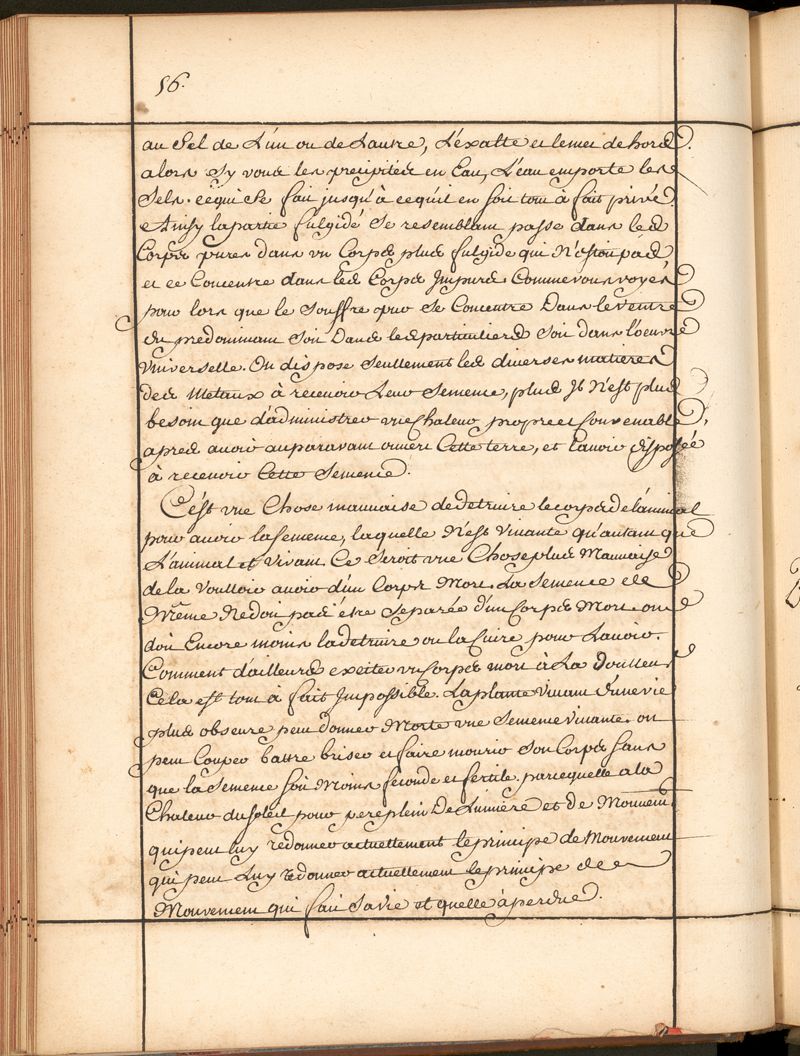 56.
au Sel de L'un ou de Lautre, L'exalte et lemet dehors.
alors Sy vous les precipités en Eau, L'eau emporte les
Sels. cequi Se fait jusqu'à cequ'il en soit tout à fait privé
Ainsy lapartie fulgide Se resemblant passe dans les
Corps pures dans un Corps plus fulgide qui N'estoit pas
et ce Concentre dans les Corps Jmpurs Commevous voyés
pour lors que le Souffre pur Se Concentre Dans leventre
du predominant Soit Dans les particuliers Soit dans l'oeuvre
Vniverselle. On dispose Seullement les diverses matieres
des Metaux à recevoir Leur Semence, plus Jl N'est plus
besoin que d'administrer vne Chaleur propre et Convenable,
apres avoir auparavant ouvert Cette terre, et L'avoir disposée
à recevoir Cette Semence.
C'est vne Chose mauvaise dedetruire lecorps de l'animal
pour avoir lasemence, laquelle N'est Vivante qu'autant que
L'animal est Vivant. Ce Seroit vne Chose plus Mauvaise
de la Voulloir avoir d'un Corps Mort. La Semence elle
Même Nedoit pas être Separée d'un Corps Mort. on
doit Encore moins ladetruire ou la Cuire pour Lavoir.
Comment d'ailleurs exciter vn Corps mort à La
Cela est tout à fait Jmpossible. Laplante Vivant d'une vie
plus obscure peut donner Morte vne Semence vivante. on
peut Couper battre briser et faire mourir Son Corps Sans
que la Semence soit Moins feconde et fertile. parcequelle a la
Chaleur du soleil pour pere plein De Lumiere et de Mouvem.t
qui peut luy redonner actuellement leprincipe de Mouvement
qui peut Luy redonner actuellement leprincipe de
Mouvement qui fait Savie et quelle à perdue.